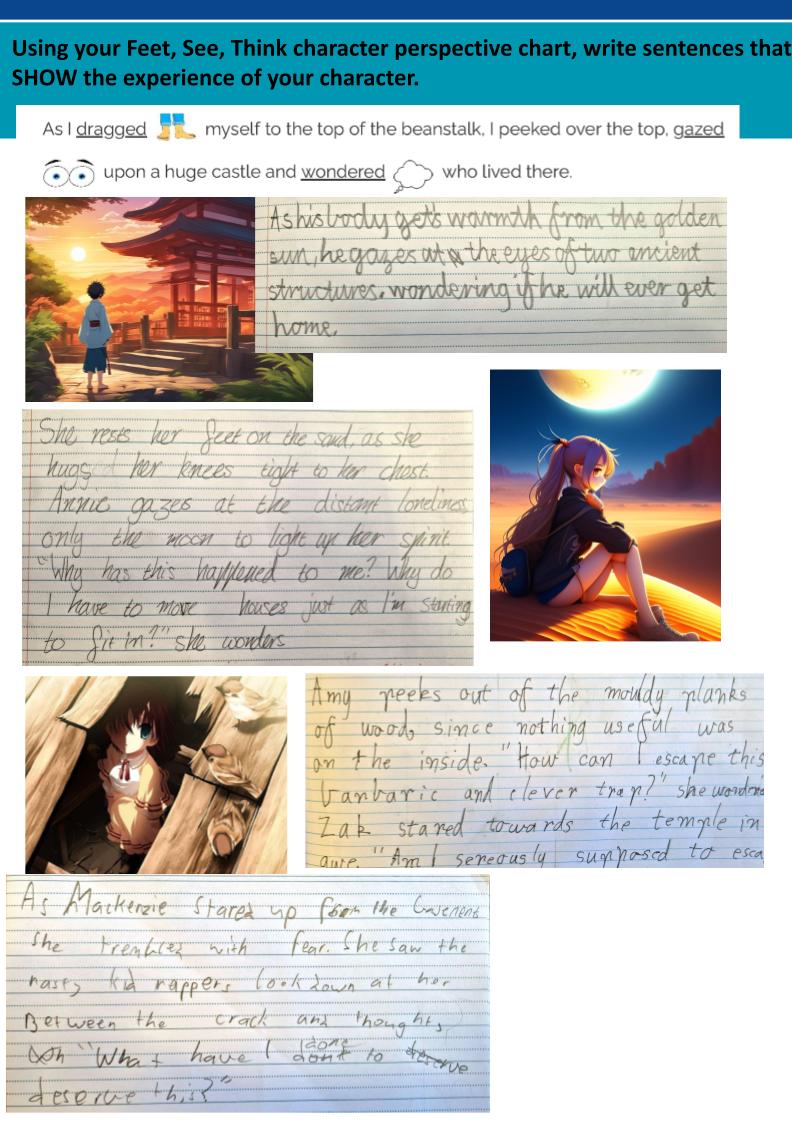 Using your Feet, See, Think character perspective chart, write sentences that
SHOW the experience of your character.
As I dragged myself to the top of the beanstalk, I peeked over the top, gazed
upon a huge castle and wondered who lived there.
As his body gets warmth from the golden
sun, he gazes at the eyes of two ancient
structures, wondering if he will ever get
home.
She rests her feet on the sand, as she
hugs her knees tight to her chest.
Annie gazes at the distant loneliness
only the moon to light up her spirit
"Why has this happened to me? Why do
I have to move houses just as I'm starting
to fit in?" she wonders
Amy peeks out of the mouldy planks
of wood, since nothing useful was
on the inside. "How can I escape this
barbaric and clever trap?" she wonders
Zak stared towards the temple in
awe. "Am I sereously supposed to esca
As Mackenzie stared up from the
she trembled with fear. She saw the
nasty kid nappers look down at her
Between the crack and thought,
"What have I done to
deserve this?"